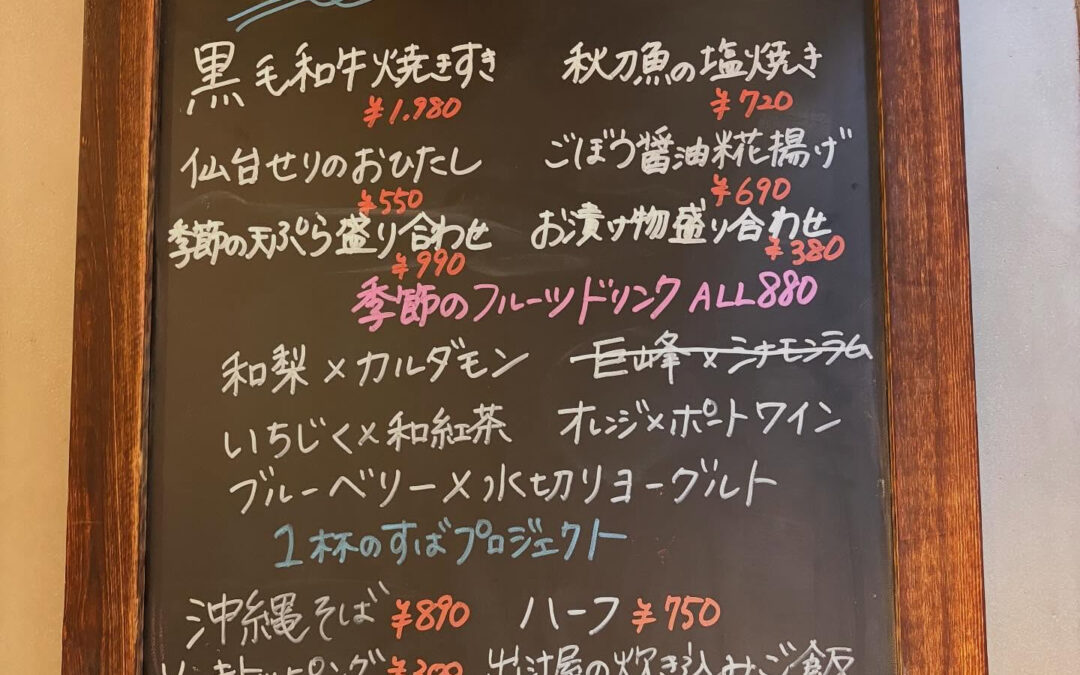 黒毛和牛焼きすき 秋刀魚の塩焼き
¥1.980 ¥720
仙台せりのおひたし ごぼう醤油糀揚げ
¥550 ¥690
季節の天ぷら盛り合わせ お漬け物盛り合わせ
¥990 ¥380
季節のフルーツドリンク ALL880
和梨×カルダモン 巨峰×シナモンラム
いちじく×和紅茶 オレンジ×ポートワイン
ブルーベリー×水切りヨーグルト
1杯のすばプロジェクト
沖縄そば ¥890 ハーフ ¥750
トッピング ¥300 出汁屋の炊き込みご飯